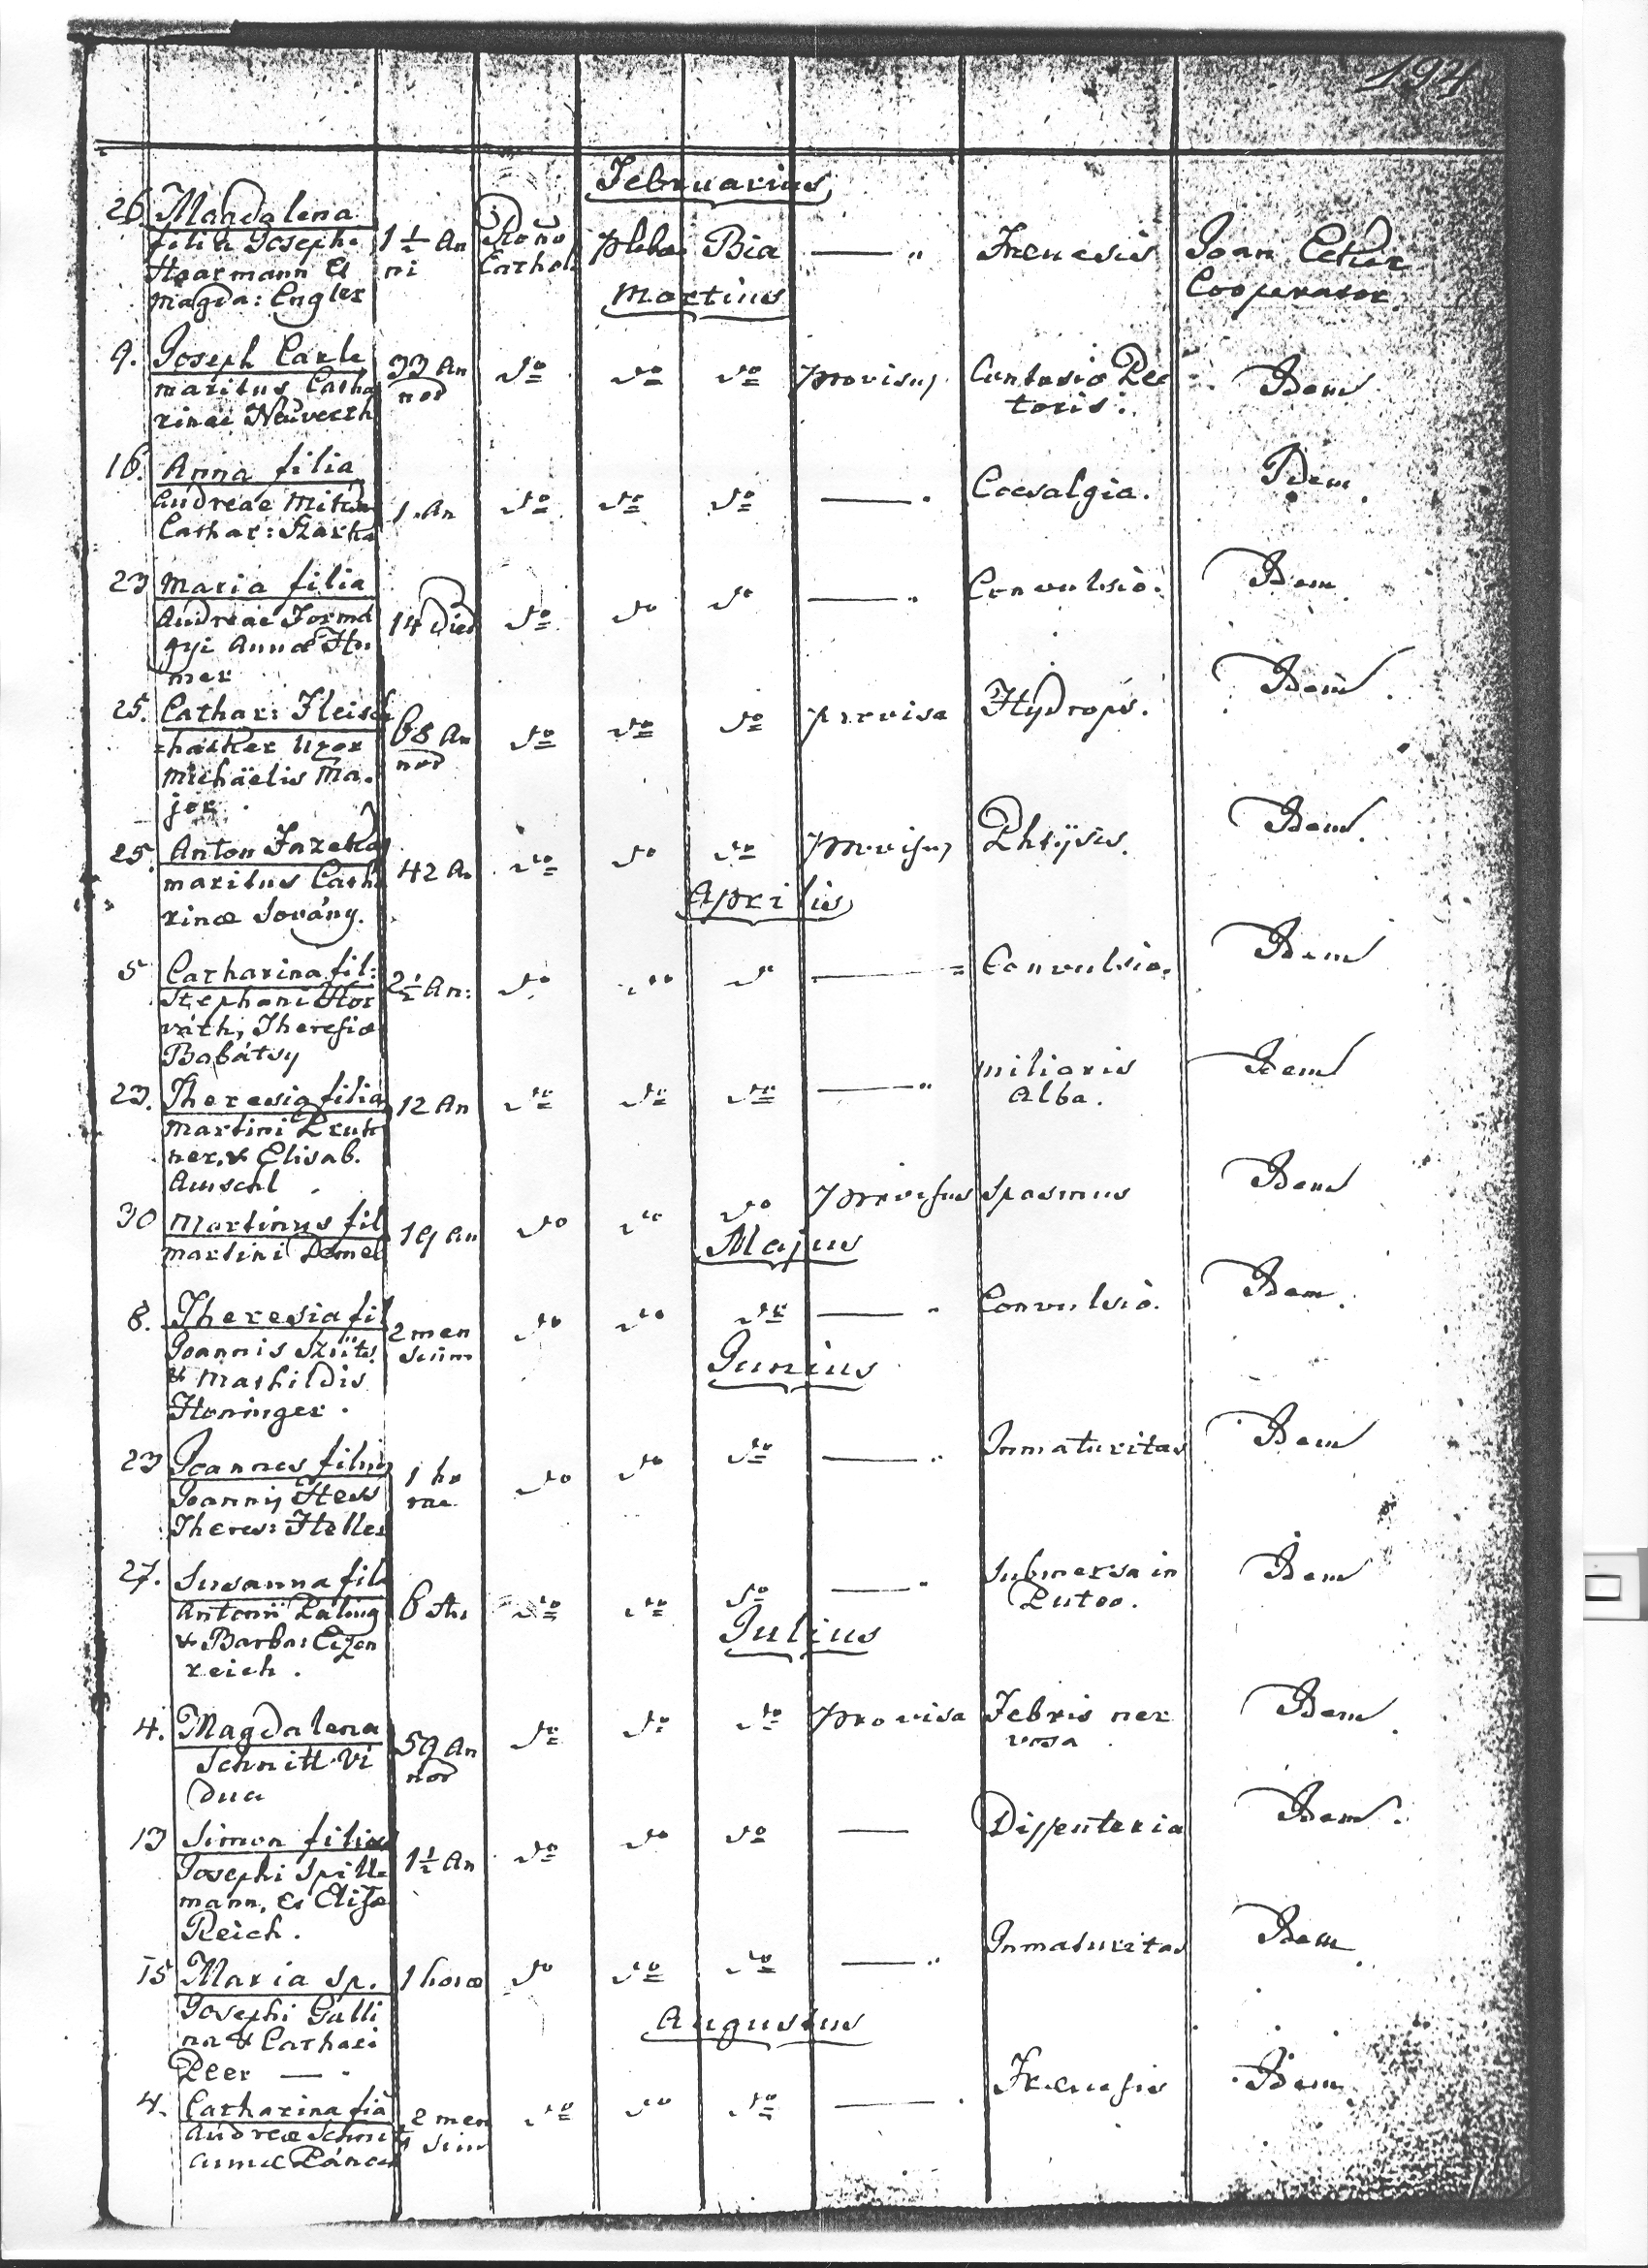 194
Februarius
26 Magdalena
filia Josephi
Haarmann Et
Magda: Engler
1 1/2 An
ni
Roño
Cathol
plebs
Bia
——— "
Frenesis
Joan
Cooperator
Martius
9. Joseph Carle
maritus Catha
rinae Neuverth
33 An
nor
do do do provisus
Contusio Pec
toris.
Idem
16. Anna filia
Andreae
Cathar: Szarka
1. An
do do do ——— "
Idem
23 Maria filia
Andreae Forma
gyi Annae Hu
mer
14 Dies
do do do ——— "
Convulsio.
Idem
25. Cathar: Fleisch
hacker Uxor
Michäelis Ma
jor
68 An
nor
do do do provisa
Hydrops.
Idem
25. Anton Fazekas
maritus Catha
rinæ Sovány.
42 An
do do do provisus
Phtÿsis.
Idem
Aprilis
5 Catharina fil:
Stephani Hor
váth, Theresiæ
Babátsy
2 1/2 An:
do do do ——— =
Convulsio.
Idem
23. Theresia filia
Martini Pruk
ner, & Elisab.
Amschl
12 An
do do do ——— "
miliaris
Alba.
Idem
30 Martinus fil
Martini Demel
19 An
do do do provisus
Spasmus
Idem
Majus
8. Theresia fil
Joannis Szüts
& Mathildis
Honinger.
2 men
sium
do do do ——— "
Convulsio.
Idem
Junius
23 Joannes filius
Joannis Hess
Theres: Heller
1 ho
rae
do do do ——— "
Inmaturitas
Idem
27. Susanna fil
Antonii Paling
& Barba: Eizen
reich.
6 An
do do do ——— "
Submersa in
Puteo.
Idem
Julius
4. Magdalena
Schmitt Vi
dua
59 An
nor
do do do provisa
Febris ner
vosa
Idem
13 Simon filius
Josephi Spill
mann, Et Elisæ
Reich.
1 1/2 An
do do do ———
Dissenteria
Idem.
15 Maria Sp.
Josephi Galli
na & Cathari
Peer — .
1 horæ
do do do ——— "
Inmaturitas
Idem
Augustus
4. Catharina fia
Andreæ Schmit
Annæ
2 men
sium
do do do ——— .
Frænesis
Idem